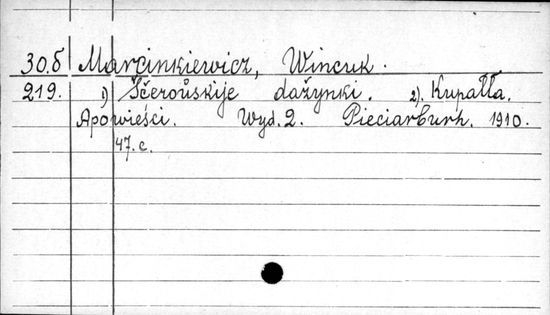 30.б Marcinkiewicz, Wincuk.
219. 1) Ščeroŭskije dažynki. 2). Kupałła.
Apowieści. Wyd. 2. Pieciarburh. 1910.
47. c.